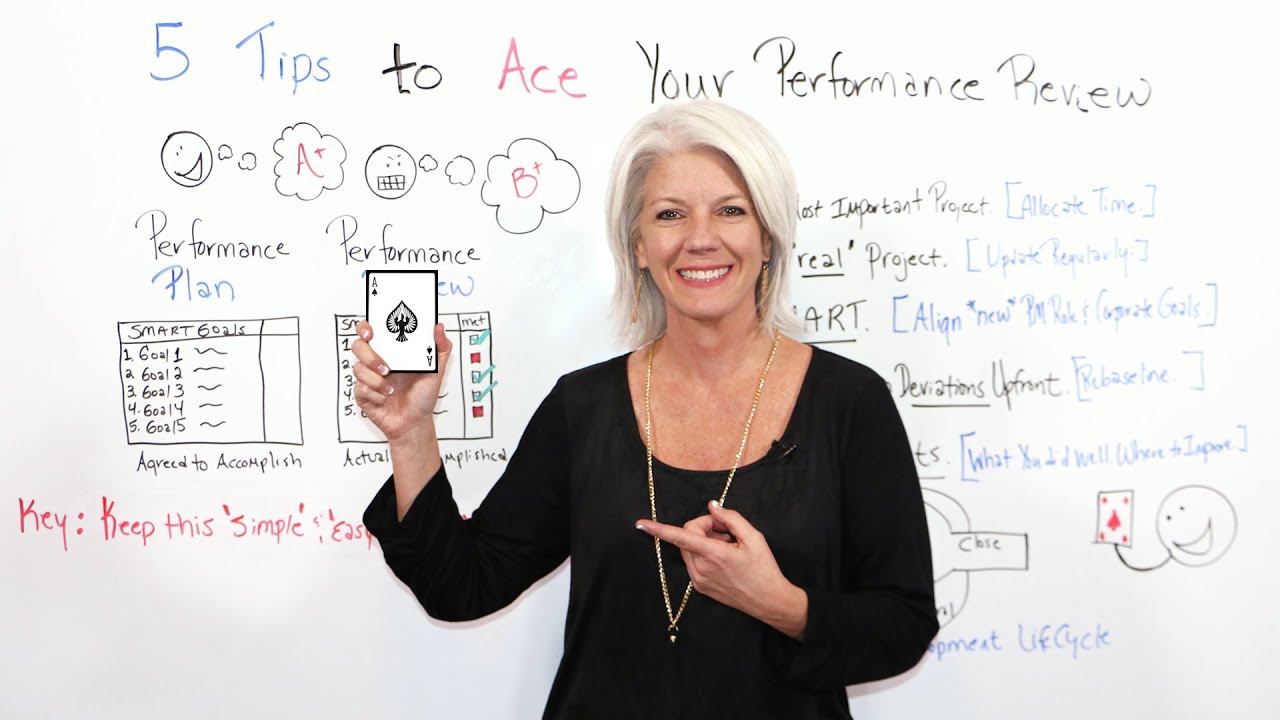 5 Tips to Ace Your Performance Review
A+
B+
Performance
Plan
SMART Goals
1. Goal 1
2. Goal 2
3. Goal 3
4. Goal 4
5. Goal 5
Agreed to Accomplish
Performance
ew
SM
met
1.
2.
3.
4.
5.
Actu mplished
A
A
Key: Keep this "Simple" & "Easy
ost Important Project. [Allocate Time.]
"real" Project. [Update Regularly.]
ART. [Align *new* PM Role & Corporate Goals.]
Deviations Upfront. [Rebaseline.]
ts. [What You did well. Where to Improve.]
Close
rol
opment LifeCycle